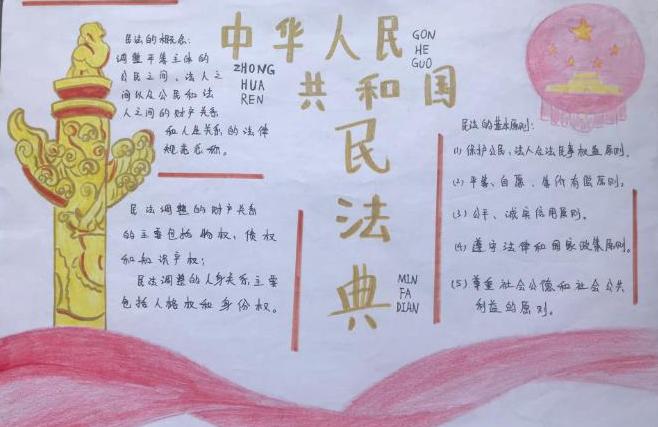 中华人民
共和国
民法典
ZHONG
HUA
REN
GON
HE
GUO
MIN
FA
DIAN
民法的概念:
调整平等主体的
公民之间、法人之
间以及公民和法
人之间的财产关系
和人身关系的法律
规范总称。
民法调整的财产关系
的主要包括物权,债权
和知识产权;
民法调整的人身关系主要
包括人格权和身份权。
民法的基本原则:
(1) 保护公民、法人合法民事权益原则。
(2) 平等、自愿、等价有偿原则。
(3) 公平、诚实信用原则。
(4) 遵守法律和国家政策原则。
(5) 尊重社会公德和社会公共
利益的原则。